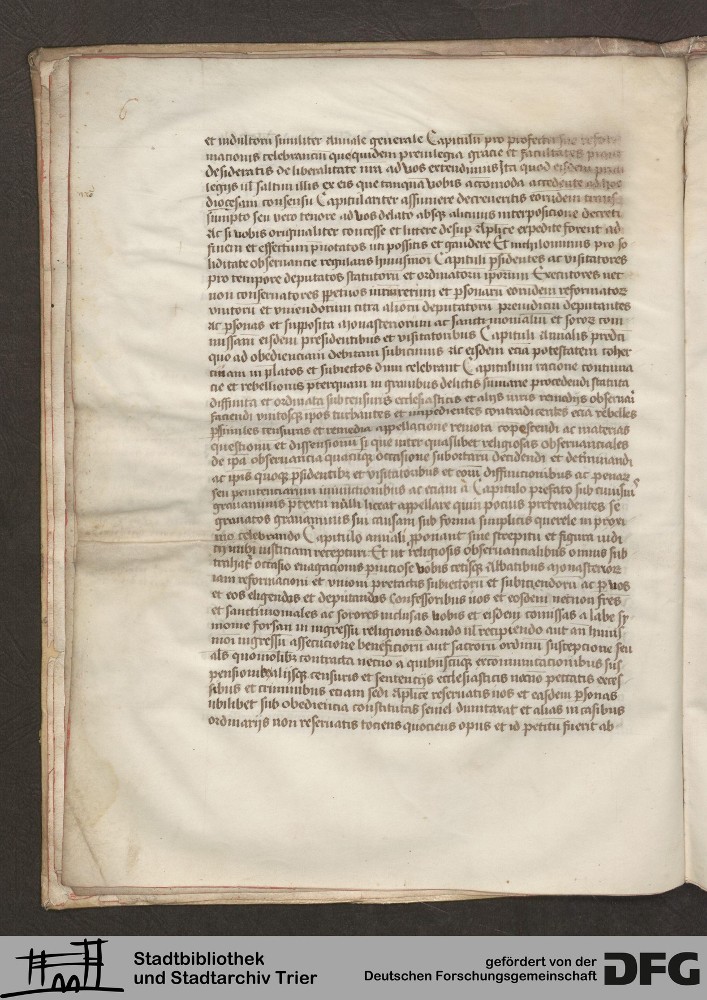 6
et indultorum similiter Annale generale Capitulū pro
macionis celebrandi quequidem preuilegia gracie et facultates
desideratis de liberalitate nra ad vos extendimus Ita quod eisdem
legijs ul saltim illis ex eis que tanquā vobis accomoda accedente ad hoc
diocesani consensu Capitulariter assumere decreueritis eorundem
sumpto seu vero tenore ad vos delato absqȝ alicuius interposicione decreti
Ac si vobis originaliter concesse et littere desup Aplice expedite forent ad
finem et effectum pnotatos uti possitis et gaudere Et nichilominus pro so
liditate obseruancie regularis huiusmoi Capituli psidentes ac visitatores
pro tempore deputatos statutorū et ordinatorū ipsorum Executores nec
non conseruatores ppetuos et psonarū eorundem reformatorꝝ
vnitorū et vniendorum citra aliorū deputatorū preiudiciū deputantes
Ac psonas et supposita Monasteriorum ac sancti monialiū et sororꝝ com
missam eisdem presidentibus et visitatoribus Capituli Annalis predcī
quo ad obedienciam debitam subicimus Ac eisdem eciā potestatem coher
citiuam in platos et subiectos dum celebrant Capitulum racione contuma
cie et rebellionis pterquam in grauibus delictis sumarie procedendi statuta
diffinita et ordinata sub censuris ecclesiasticis et alijs iuris remedijs obseruari
faciendi ipos turbantes et impedientes contradicentes eciā rebelles
psimiles censuras et remedia appellacione remota copescendi ac materias
questionū et dissensionū si que inter quaslibet religiosas obseruanciales
de ipa obseruancia quacūqȝ occasione subortarū decidendi et determinandi
ac ipis quoqȝ psidentibȝ et visitatoribus et eorū diffinicionibus ac penarꝝ
seu penitenciarum iniunctionibus ac eciam a Capitulo prefato sub cuiusuis
grauaminis ptextu nulli liceat appellare quin pocius pretendentes se
grauatos grauaminis sui causam sub forma simplicis querele in proxi
mo celebrando Capitulo annali pponant sine strepitu et figura iudi
cij inibi iusticiam recepturi Et ut religiosis obseruancialibus omnis sub
trahatr occasio euagacionis pniciose vobis cetisqȝ Abbatibus Monasteriorꝝ
iam reformacioni et vnioni pretactis subiectorū et subiciendorū ac p vos
et eos eligendos et deputandos Confessoribus uos et eosdem necnon fres
et sanctimoniales ac sorores inclusas vobis et eisdem comissas a labe sy
monie forsan in ingressu religionis dando ul recipiendo aut an huius
moi ingressū assecucione beneficiorū aut sacrorū ordinū suscepcione seu
als quomolibȝ contracta necno a quibuscūqȝ excommunicationibus sus
pensionibȝ alijsqȝ censuris et sentencijs ecclesiasticis necno peccatis exces
sibus et criminibus eciam sedi Aplice reseruatis uos et easdem psonas
ubilibet sub obediencia constitutas semel dumtaxat et alias in casibus
ordinarijs non reseruatis tociens quociens opus et id petitū fuerit ab
Stadtbibliothek
und Stadtarchiv Trier
gefördert von der
Deutschen Forschungsgemeinschaft
DFG